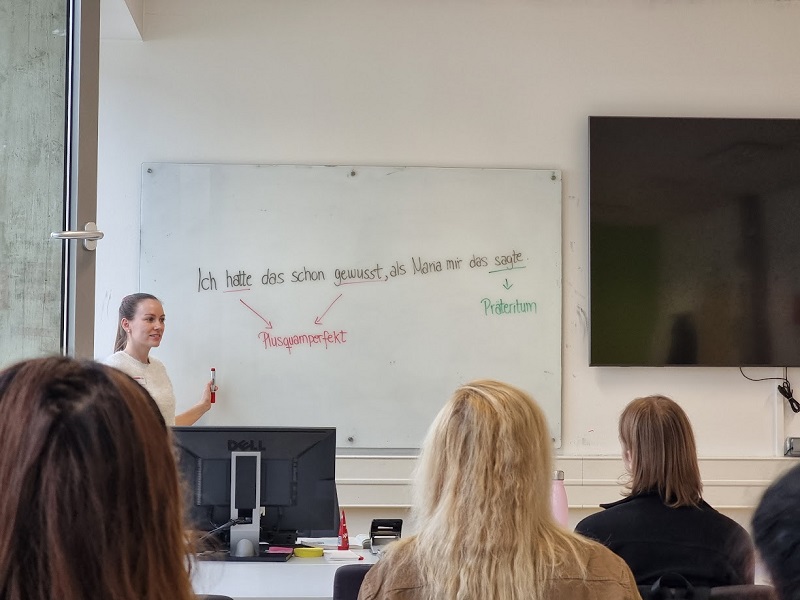 Ich hatte das schon gewusst, als Maria mir das sagte.
Plusquamperfekt
Präteritum
DELL